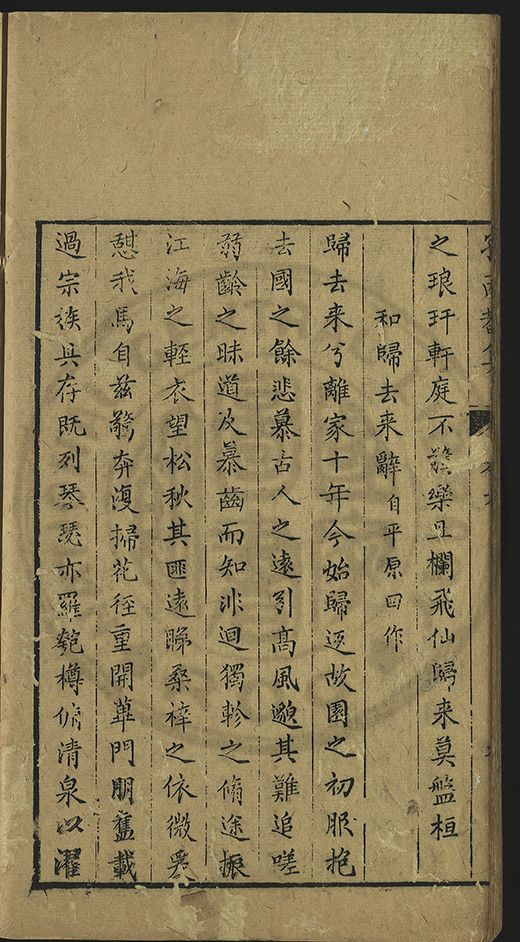 之琅玕軒庭不驚樂丑欄飛仙歸来莫盤桓
和歸去来辭自平原回作
歸去来兮離家十年今始歸返故園之初服抱
去國之餘悲慕古人之遠引高風邈其難追嗟
弱齡之昧道及暮齒而知非迴獨軫之脩途振
江海之輕衣望松秋其匪遠睇桑梓之依微爰
憇我馬自兹驁奔復掃花徑重開蓽門朋舊載
過宗族具存既列琴瑟亦羅匏樽俯清泉以濯